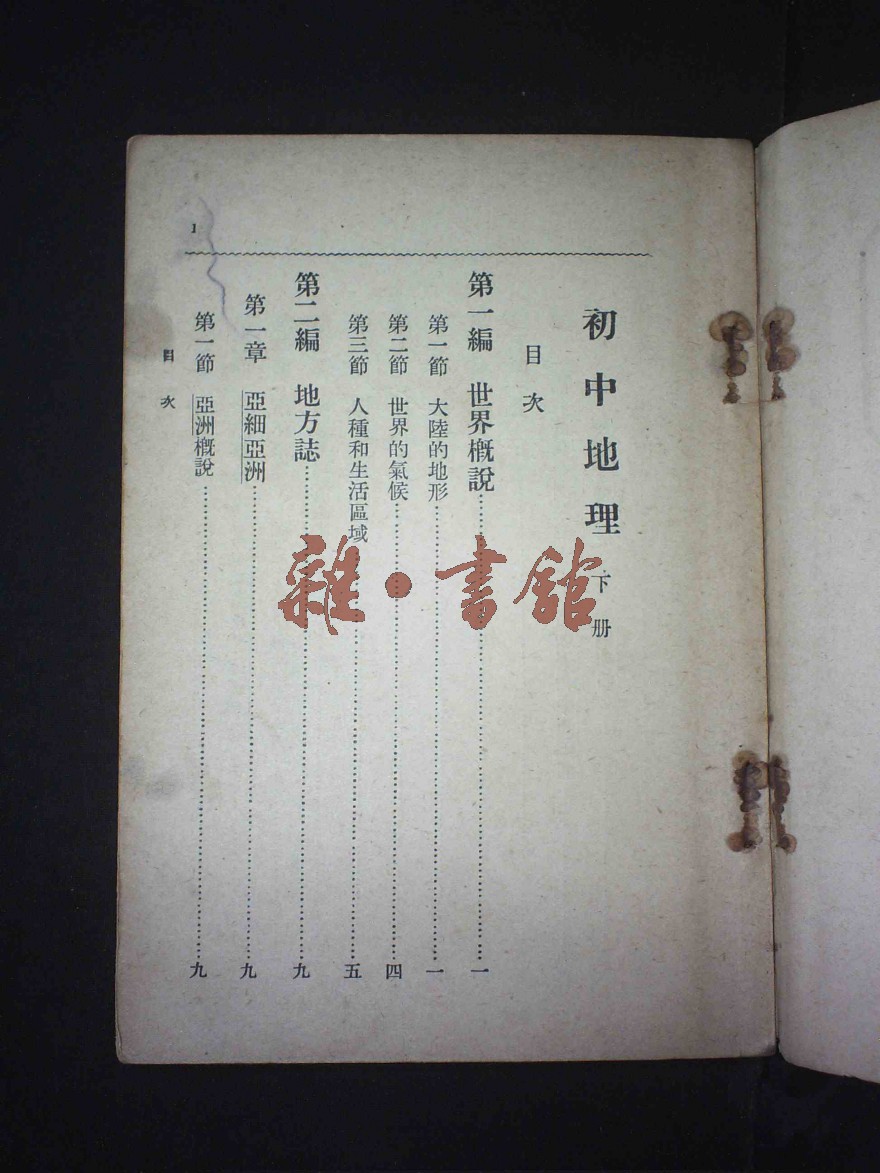 初中地理 下册
目次
第一編 世界槪說……一
第一節 大陸的地形……一
第二節 世界的氣候……四
第三節 人種和生活區域……五
第二編 地方誌……九
第一章 亞細亞洲……九
第一節 亞洲槪說……九
目次
1
雜·書館